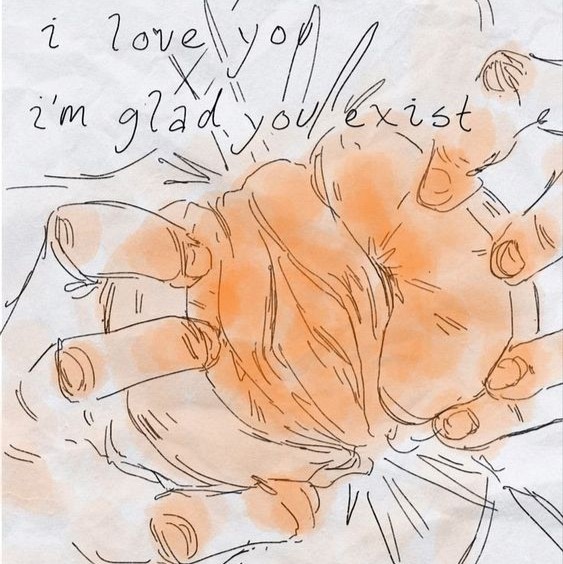 i love you
i'm glad you exist